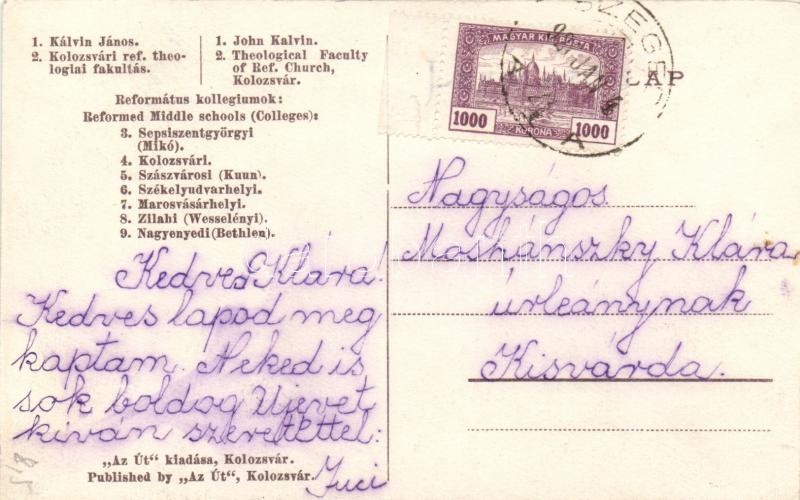 1. Kálvin János.
2. Kolozsvári ref. theo-
logiai fakultás.
1. John Kalvin.
2. Theological Faculty
of Ref. Church,
Kolozsvár.
Református kollegiumok:
Reformed Middle schools (Colleges):
3. Sepsiszentgyörgyi
(Mikó).
4. Kolozsvári.
5. Szászvárosi (Kuun).
6. Székelyudvarhelyi.
7. Marosvásárhelyi.
8. Zilahi (Wesselényi).
9. Nagyenyedi (Bethlen).
MAGYAR KIR. POSTA
1000 KORONA 1000
Kedves Klára!
Kedves lapod meg
kaptam. Neked is
sok boldog Ujévet
kiván szeretettel:
Juci
Nagyságos
Moshánszky Klára
úrleánynak
Kisvárda.
„Az Út“ kiadása, Kolozsvár.
Published by „Az Út“, Kolozsvár.